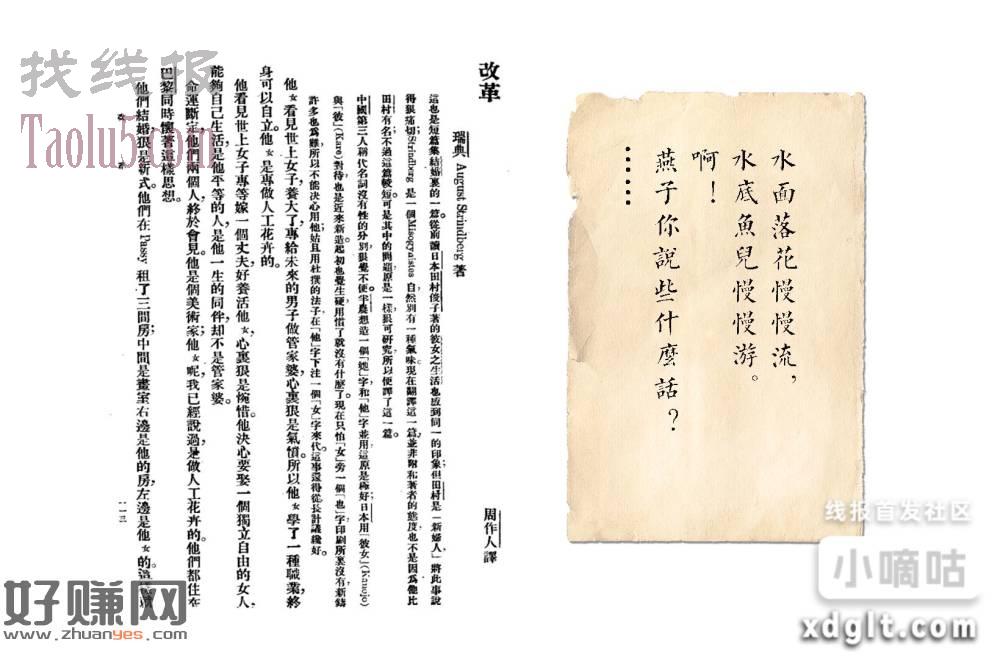 改革
瑞典 August Strindberg 著
周作人譯
這也是短篇集結婚裏的一篇。從前讀日本田村俊子著的彼女之生活也感到同一的印象但田村是「新婦人」將此事說
得狠痛切Strindberg 是一個Misogynistes 自然別有一種氣味現在翻譯這一篇並非附和著者的態度也不是因爲他比
田村有名不過這篇較短可是其中的問題原是一樣狠可研究所以便譯了這一篇。
中國第三人稱代名詞沒有性的分別狠覺不便半農想造一個「她」字和「他」字並用這原是極好日本用「彼女」(Kanojo)
與「彼」(Kare)對待也是近來新造起初也覺生硬用慣了就沒有什麼了現在只怕「女」旁一個「也」字印刷所裏沒有新鑄
許多也爲難所以不能決心用他姑且用杜撰的法子在「他」字下注一個「女」字來代。這事還得從長計議纔好。
他女看見世上女子養大了專給未來的男子做管家婆心裏狠是氣憤所以他女學了一種職業終
身可以自立。他女是專做人工花卉的。
他看見世上女子專等嫁一個丈夫好養活他女心裏狠是惋惜。他決心要娶一個獨立自由的女人,
能夠自己生活是他平等的人是他一生的同伴却不是管家婆。
命運斷定他們兩個人終於會見。他是個美術家他女呢我已經說過是做人工花卉的。他們都住在
巴黎同時懷著這樣思想。
他們結婚狠是新式他們在 Passy 租了三間房中間是畫室右邊是他的房左邊是他女的。
一一三
水面落花慢慢流,
水底魚兒慢慢游。
啊!
燕子你說些什麼話?
……
找线报
Taolu5.com
好赚网
www.zhuanyes.com
线报首发社区
小嘀咕
xdglt.com